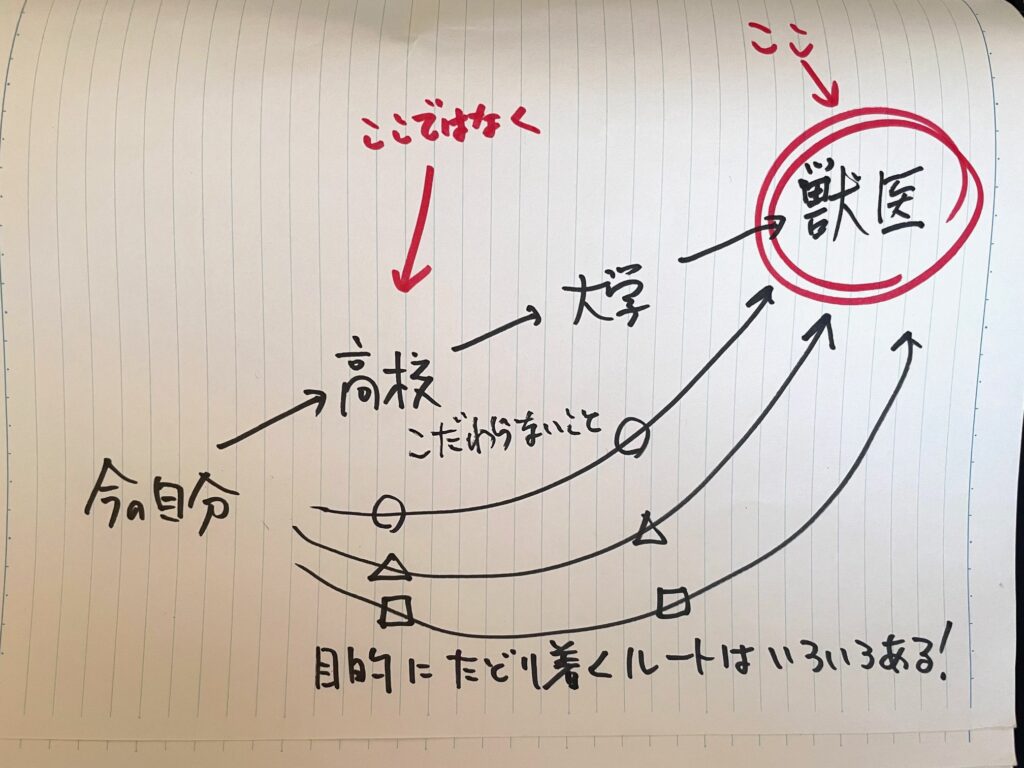 ここ
ここではなく
獣医
大学
高校
こだわらないこと
今の自分
目的にたどり着くルートはいろいろある!